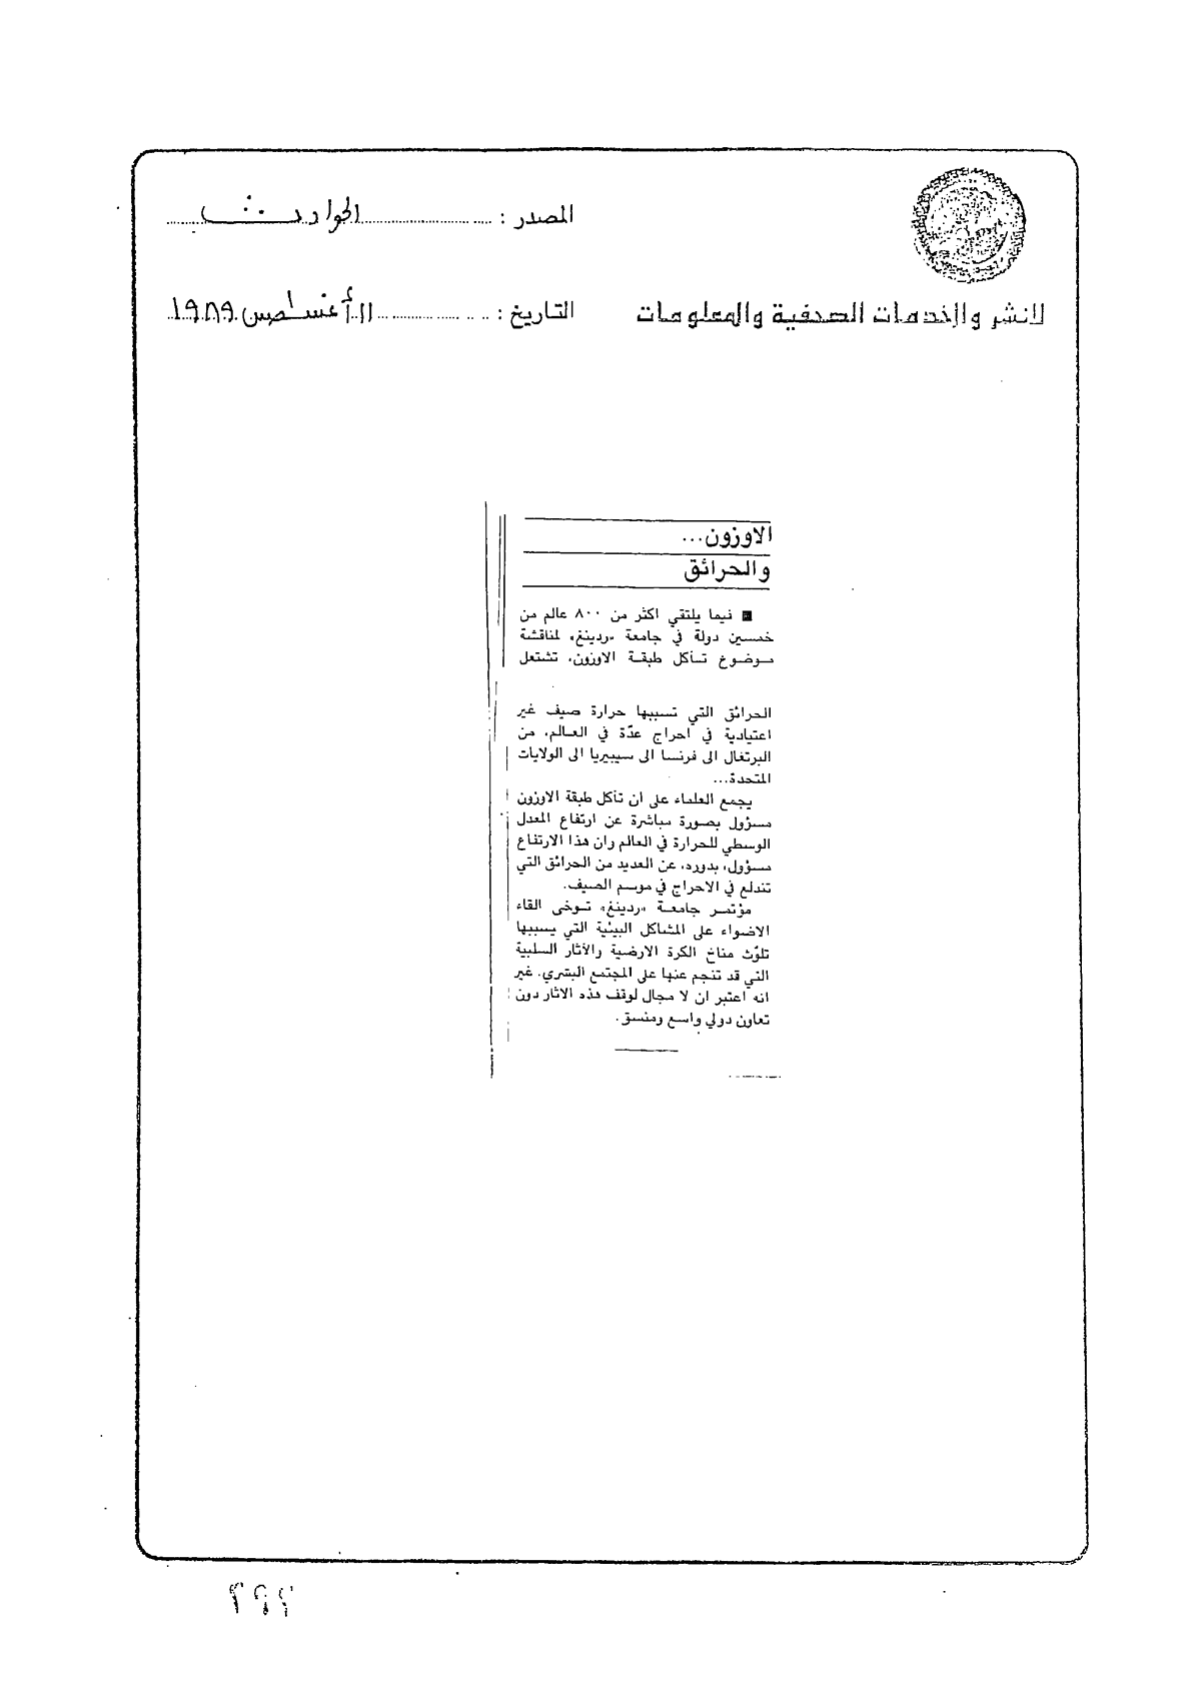 المصدر : الحوادث
للنشر والخدمات الصحفية والمعلومات
التاريخ : ١١ أغسطس ١٩٨٩
الاوزون...
والحرائق
■ فيما يلتقي اكثر من ٨٠٠ عالم من
خمسين دولة في جامعة «ردينغ» لمناقشة
موضوع تآكل طبقة الاوزون، تشتعل
الحرائق التي تسببها حرارة صيف غير
اعتيادية في احراج عدّة في العالم، من
البرتغال الى فرنسا الى سيبيريا الى الولايات
المتحدة...
يجمع العلماء على ان تآكل طبقة الاوزون
مسؤول بصورة مباشرة عن ارتفاع المعدل
الوسطي للحرارة في العالم وان هذا الارتفاع
مسؤول، بدوره، عن العديد من الحرائق التي
تندلع في الاحراج في موسم الصيف.
مؤتمر جامعة «ردينغ» توخى القاء
الاضواء على المشاكل البيئية التي يسببها
تلوّث مناخ الكرة الارضية والآثار السلبية
التي قد تنجم عنها على المجتمع البشري. غير
انه اعتبر ان لا مجال لوقف هذه الاثار دون
تعاون دولي واسع ومنسق.